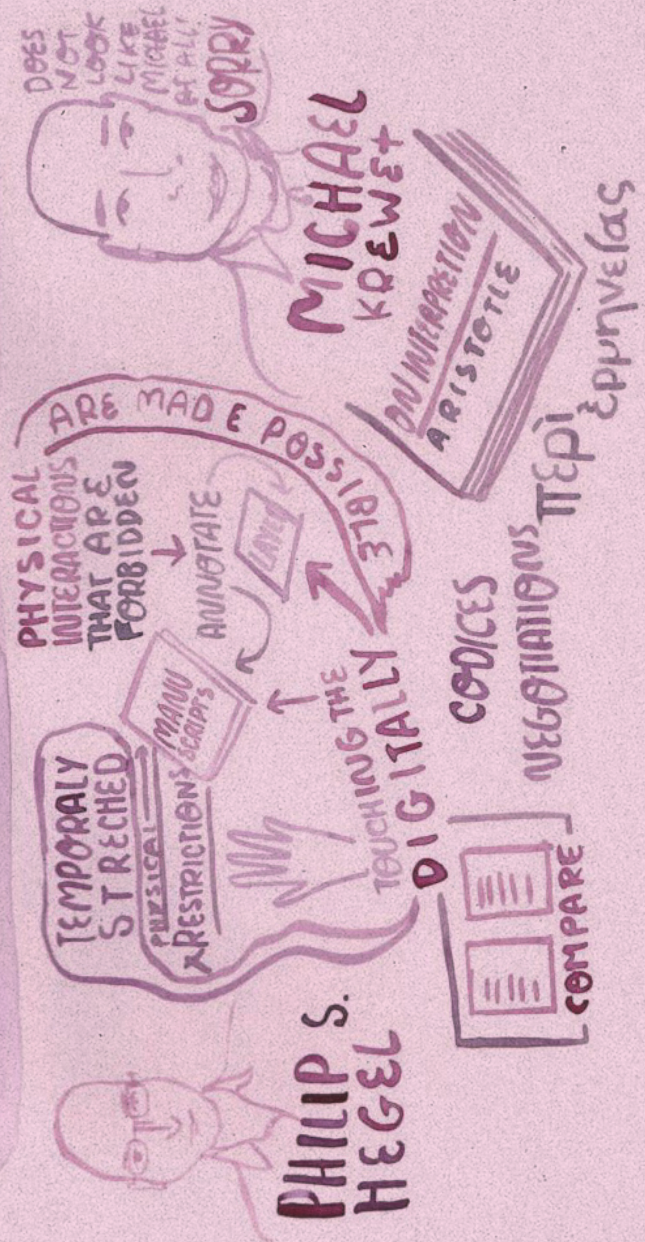 PHILIP S.
HEGEL
TEMPORALY
STRECHED
PHYSICAL
RESTRICTIONS
MANU
SCRIPTS
TOUCHING THE
DIGITALLY
PHYSICAL
INTERACTIONS
THAT ARE
FORBIDDEN
ANNOTATE
LAYER
ARE MADE POSSIBLE
COMPARE
CODICES
NEGOTIATIONS
DOES
NOT
LOOK
LIKE
MICHAEL
AT ALL!
SORRY
MICHAEL
KREWET
ON INTERPRETION
ARISTOTLE
περὶ
ἑρμηνείας